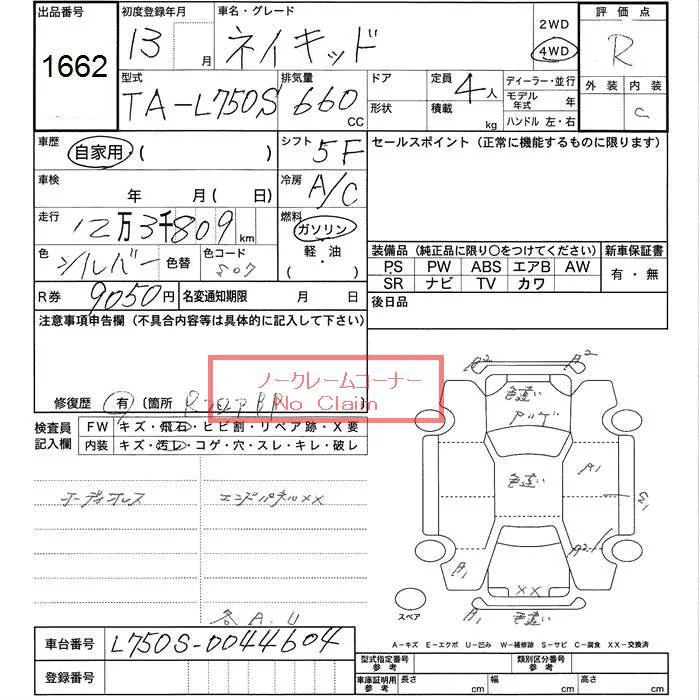 出品番号 初度登録年月 車名・グレード 2WD 評価点
1662 13 月 ネイキッド 4WD R
型式 排気量 ドア 定員 ディーラー・並行 外装 内装
TA-L750S 660 CC 形状 積載 4人 kg モデル年式 年 C
ハンドル 左・右
車歴 自家用 ( ) シフト 5F セールスポイント (正常に機能するものに限ります)
車検 年 月 ( 日) 冷房 A/C
走行 12万3千809 km 燃料 ガソリン
軽・油
( ・ )
色 シルバー 色替 色コード S07
装備品 (純正品に限り○をつけてください) 新車保証書
PS PW ABS エアB AW 有・無
SR ナビ TV カワ
R券 9050円 名変通知期限 月 日 後日品
注意事項申告欄 (不具合内容等は具体的に記入して下さい)
ノークレームコーナー
No Claim
修復歴 有 (箇所 )
検査員記入欄 FW キズ・飛石・ヒビ割・リペア跡・X要
内装 キズ・汚レ・コゲ・穴・スレ・キレ・破レ
オーディオレス エンドパネルXX
各A.U
A2 A2
色違い
色違い
A1
A2
A1
XX
A1 色違い
スペア
A-キズ E-エクボ U-凹み W-補修跡 S-サビ C-腐食 XX-交換済
車台番号 L750S-0044604
登録番号
型式指定番号参考 類別区分番号参考
車庫証明用参考 長さ cm 幅 cm 高さ cm